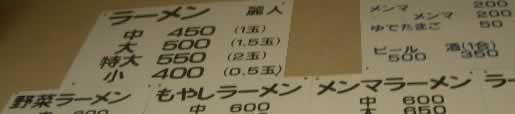 ラーメン 麗人
中 450 (1玉)
大 500 (1.5玉)
特大 550 (2玉)
小 400 (0.5玉)
メンマ 200
メンマ 200
ゆでたまご 50
ビール 500
酒(1合) 350
野菜ラーメン
もやしラーメン
中 600
メンマラーメン
中 600
大 650